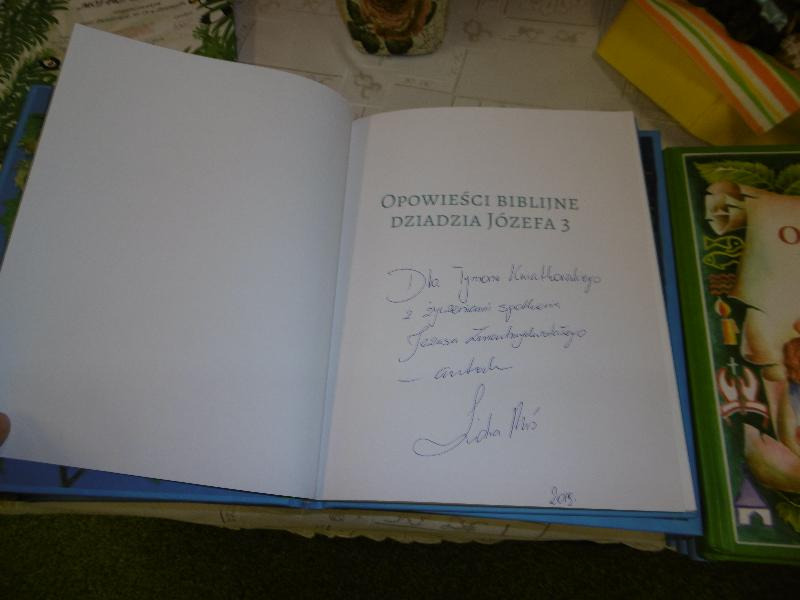 OPOWIEŚCI BIBLIJNE
DZIADZIA JÓZEFA 3
Dla Tymona Kwiatkowskiego
z życzeniami spotkania
Jezusa Zmartwychwstałego
– autorka
Lidia Miś
2015r.
O